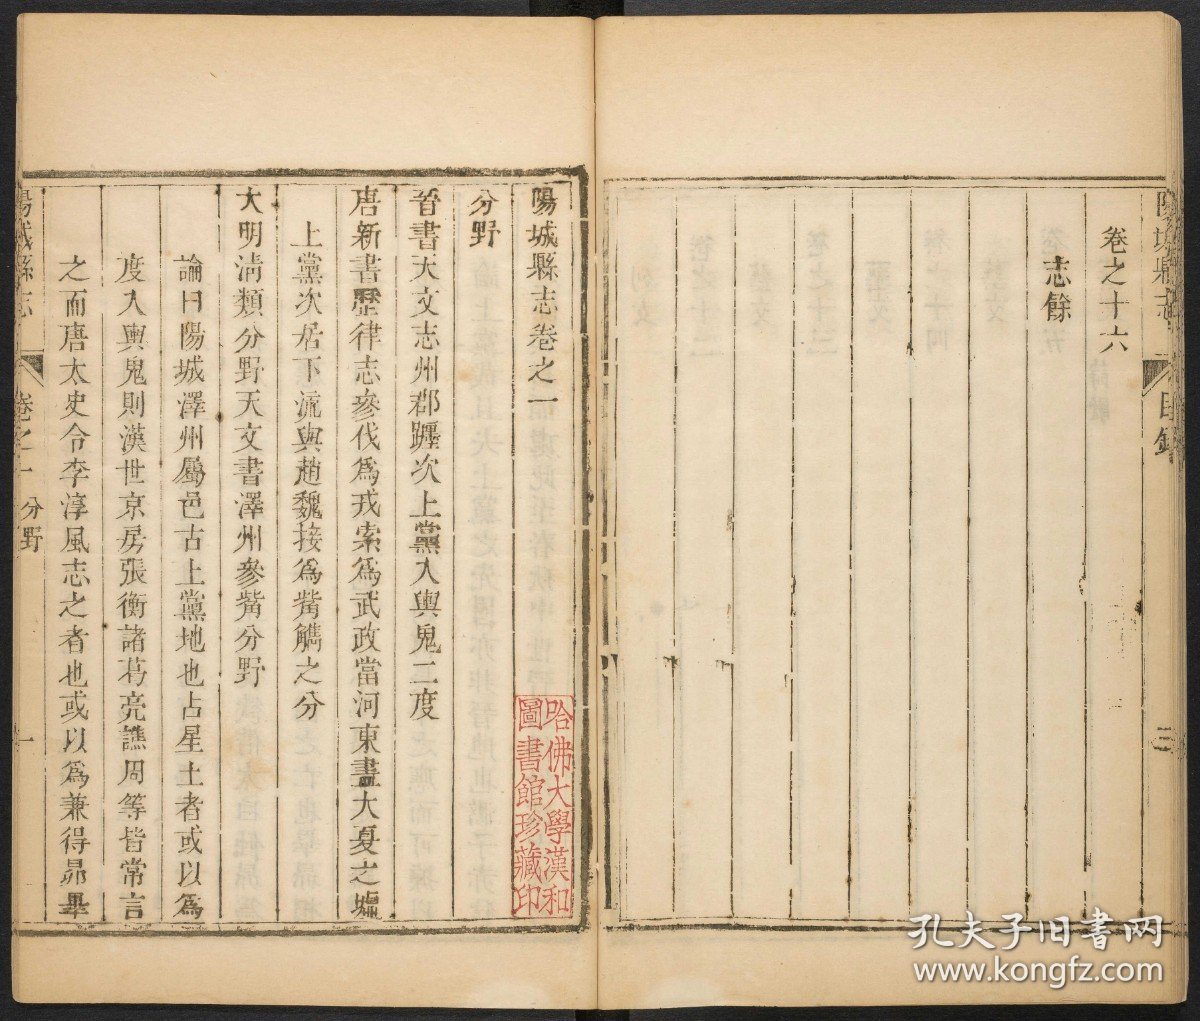 陽城縣志
目錄
三
卷之十六
志餘
陽城縣志卷之一
分野
晉書天文志州郡躔次上黨入輿鬼二度
唐新書歷律志參伐爲戎索爲武政當河東盡大夏之墟
上黨次居下流與趙魏接爲觜觿之分
大明淸類分野天文書澤州參觜分野
論曰陽城澤州屬邑古上黨地也占星土者或以爲
度入輿鬼則漢世京房張衡諸葛亮譙周等皆常言
之而唐太史令李淳風志之者也或以爲兼得昴畢
陽城縣志
卷之一
分野
一
哈佛大學漢和
圖書館珍藏印
孔夫子旧书网
www.kongfz.com